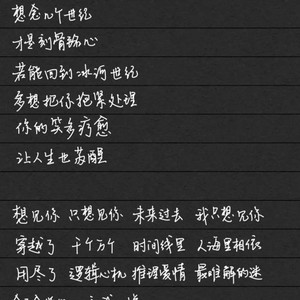 想念几个世纪
才是刻骨铭心
若能回到冰河世纪
多想把你抱紧处理
你的笑多疗愈
让人生也苏醒
想见你 只想见你 未来过去 我只想见你
穿越了 千个万个 时间线里 人海里相依
用尽了 逻辑心机 推理爱情 最难解的谜